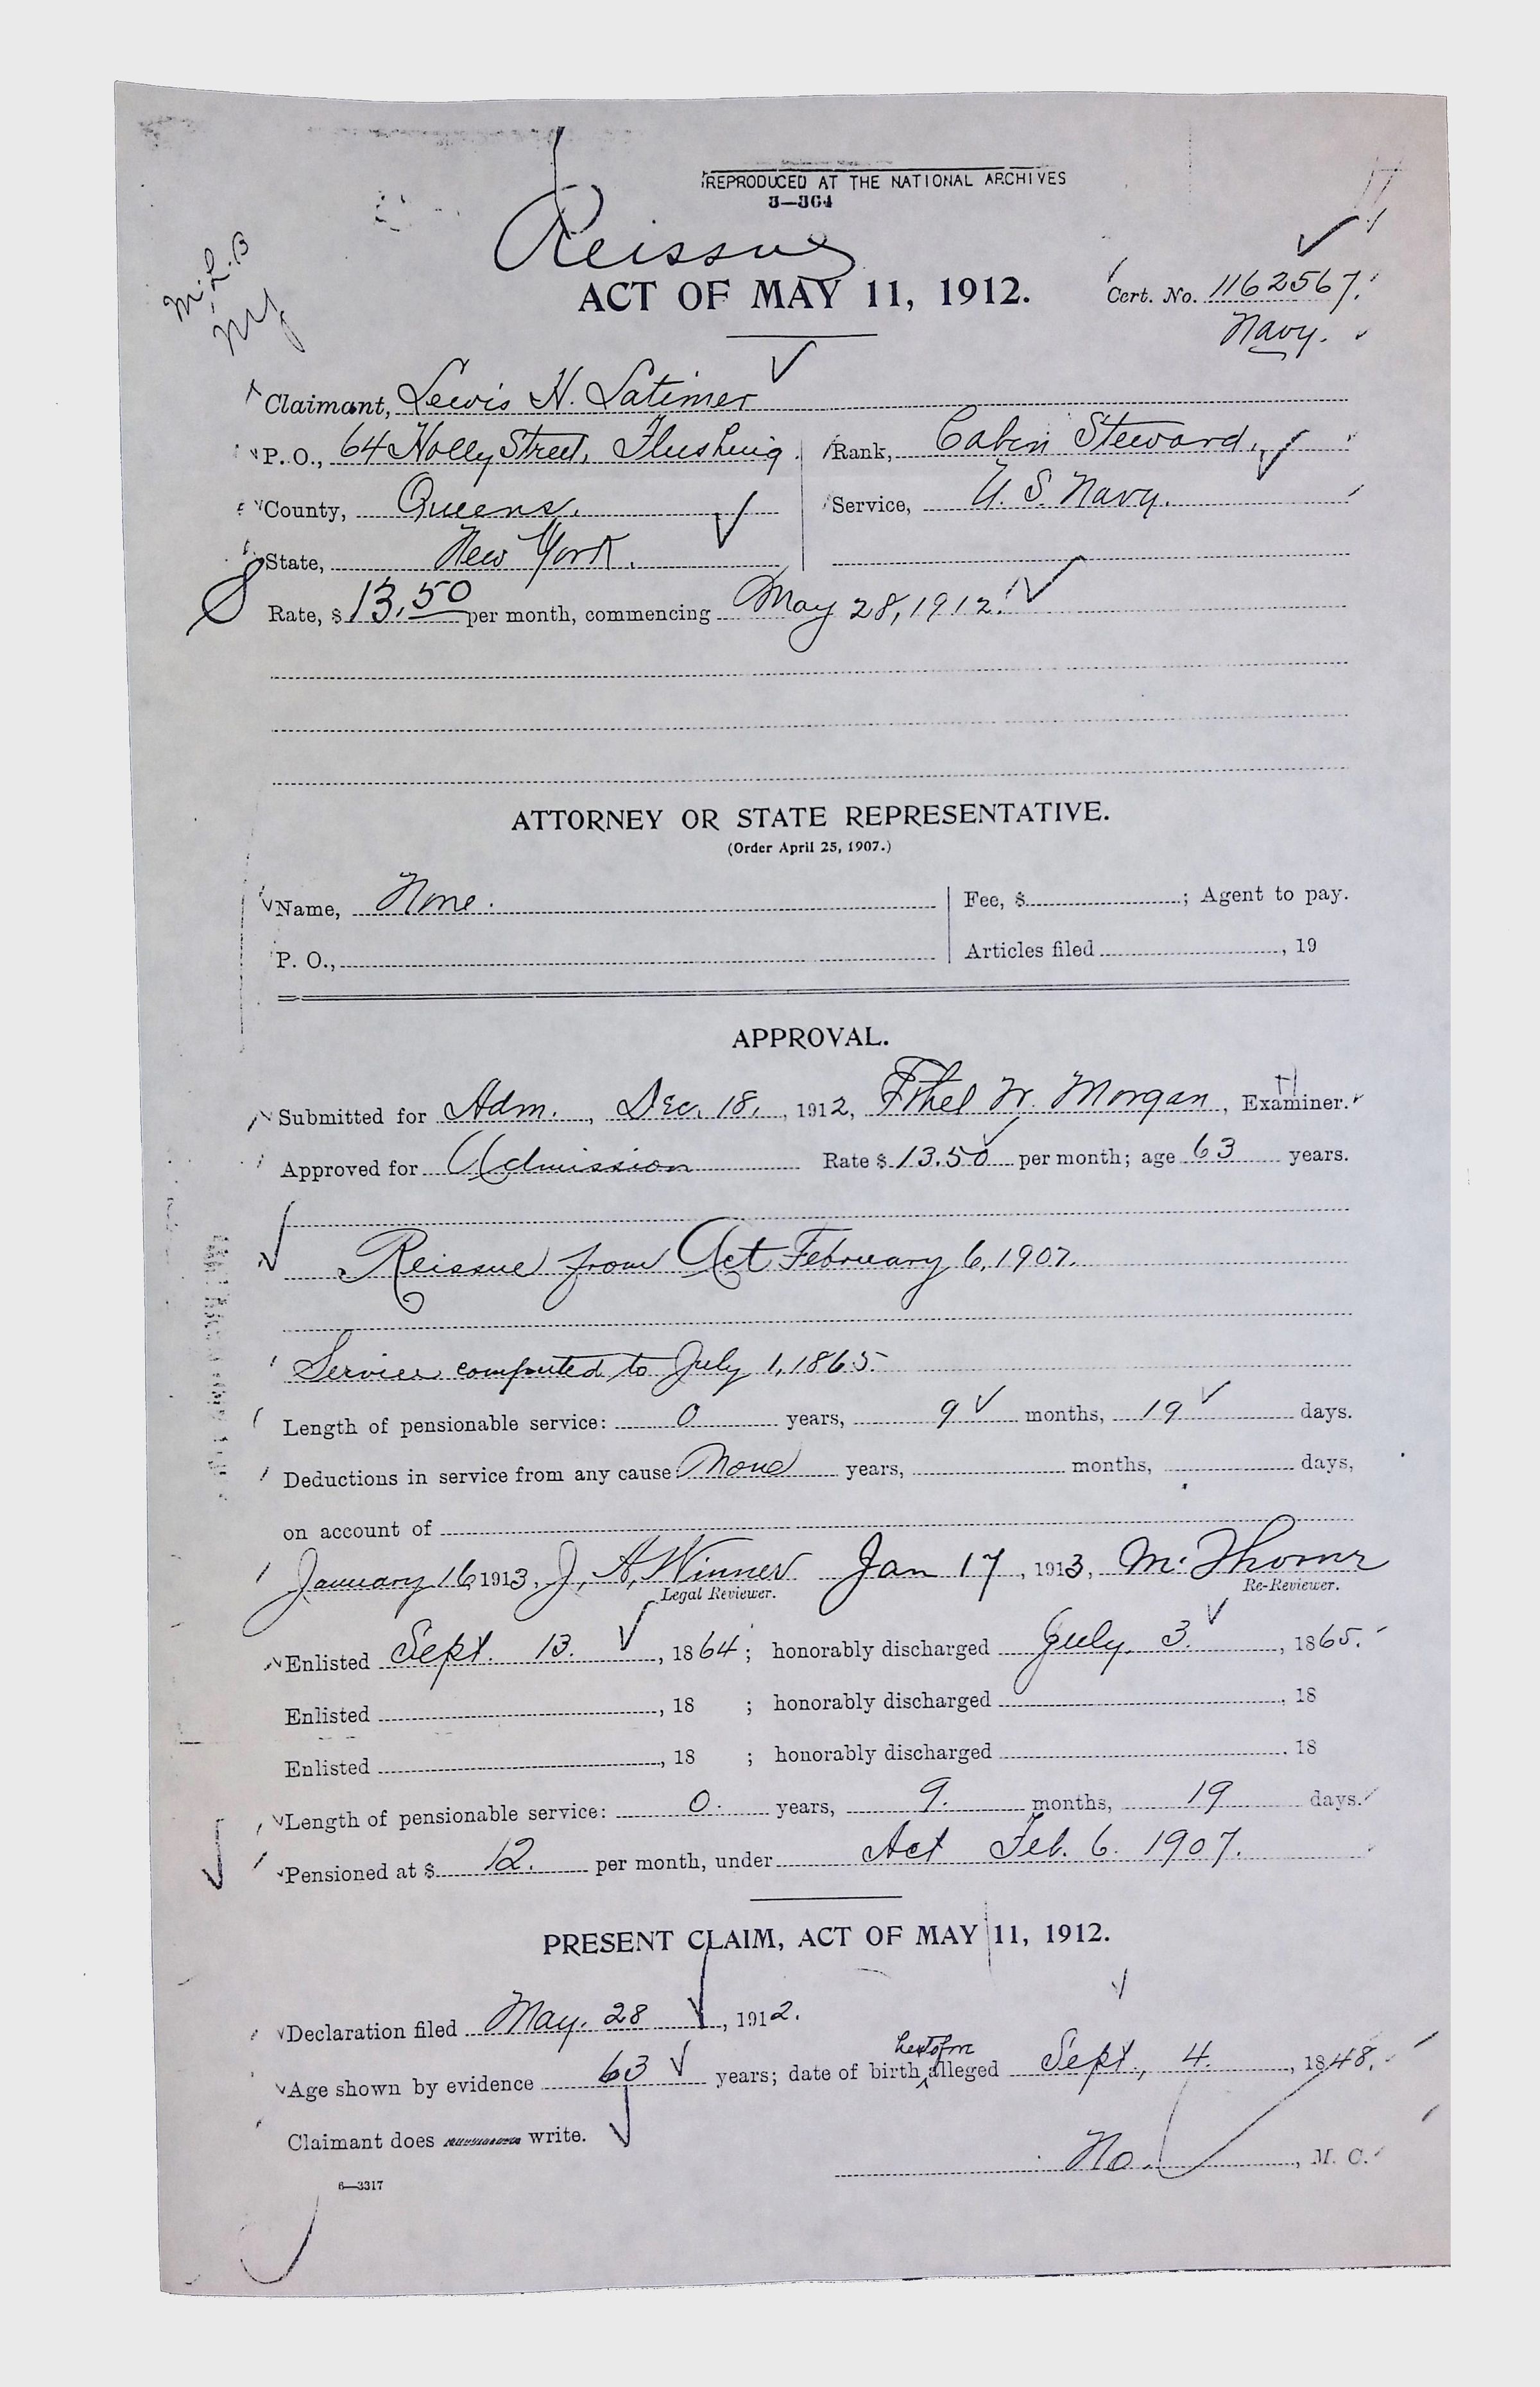 REPRODUCED AT THE NATIONAL ARCHIVES
3—364
Reissue
M. L. B
NY
ACT OF MAY 11, 1912.
Cert. No. 1162567.
Navy.
Claimant, Lewis H. Latimer
P. O., 64 Holly Street, Flushing.
Rank, Cabin Steward.
County, Queens.
Service, U. S. Navy.
State, New York.
Rate, $13.50 per month, commencing May 28, 1912.
ATTORNEY OR STATE REPRESENTATIVE.
(Order April 25, 1907.)
Name, None.
Fee, $ ; Agent to pay.
P. O.,
Articles filed , 19
APPROVAL.
Submitted for Adm., Dec. 18, 1912, Ethel W. Morgan, Examiner.
Approved for Admission Rate $ 13.50 per month; age 63 years.
Reissue from Act February 6, 1907.
Service computed to July 1, 1865.
Length of pensionable service: 0 years, 9 months, 19 days.
Deductions in service from any cause: None years, months, days,
on account of
January 16 1913, J. A. Winner Jan 17, 1913, M. Thorne
Legal Reviewer. Re-Reviewer.
Enlisted Sept. 13. , 1864; honorably discharged July. 3. , 1865.
Enlisted , 18 ; honorably discharged , 18
Enlisted , 18 ; honorably discharged , 18
Length of pensionable service: 0. years, 9. months, 19 days.
Pensioned at $ 12. per month, under Act Feb. 6. 1907.
PRESENT CLAIM, ACT OF MAY 11, 1912.
Declaration filed May. 28 , 1912.
Age shown by evidence 63 years; date of birth alleged Sept. 4. , 1848.
Claimant does write.
No. , M. C.
6—3317